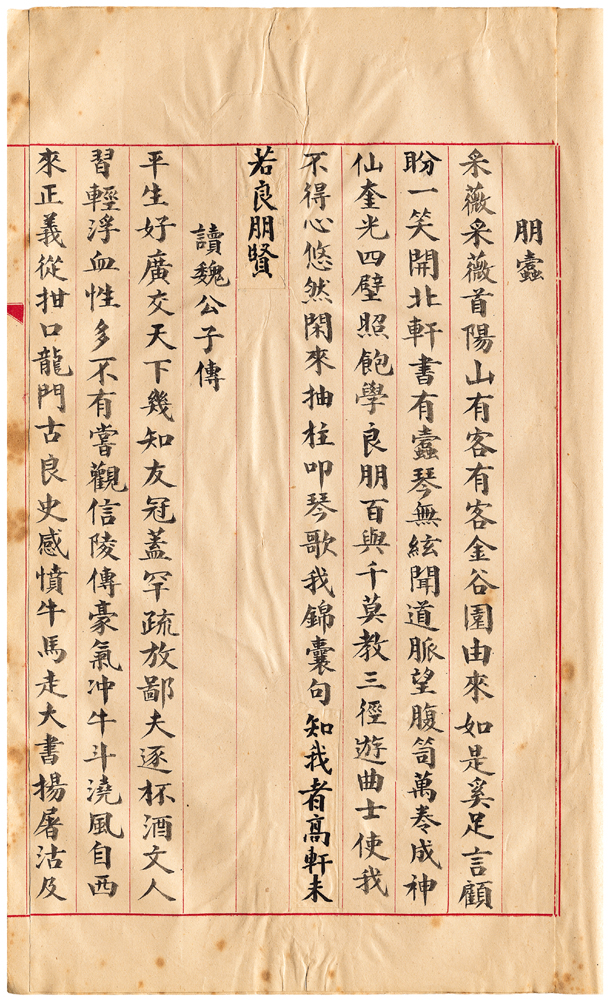 朋蠹
采薇采薇首陽山有客有客金谷園由來如是奚足言顧
盼一笑開北軒書有蠹琴無絃聞道脈望腹笥萬卷成神
仙奎光四壁照飽學良朋百與千莫教三徑遊曲士使我
不得心悠然閑來抽柱叩琴歌我錦囊句知我者高軒未
若良朋賢
讀魏公子傳
平生好廣交天下幾知友冠蓋罕疏放鄙夫逐杯酒文人
習輕浮血性多不有嘗觀信陵傳豪氣冲牛斗澆風自西
來正義從拑口龍門古良史感憤牛馬走大書揚屠沽及